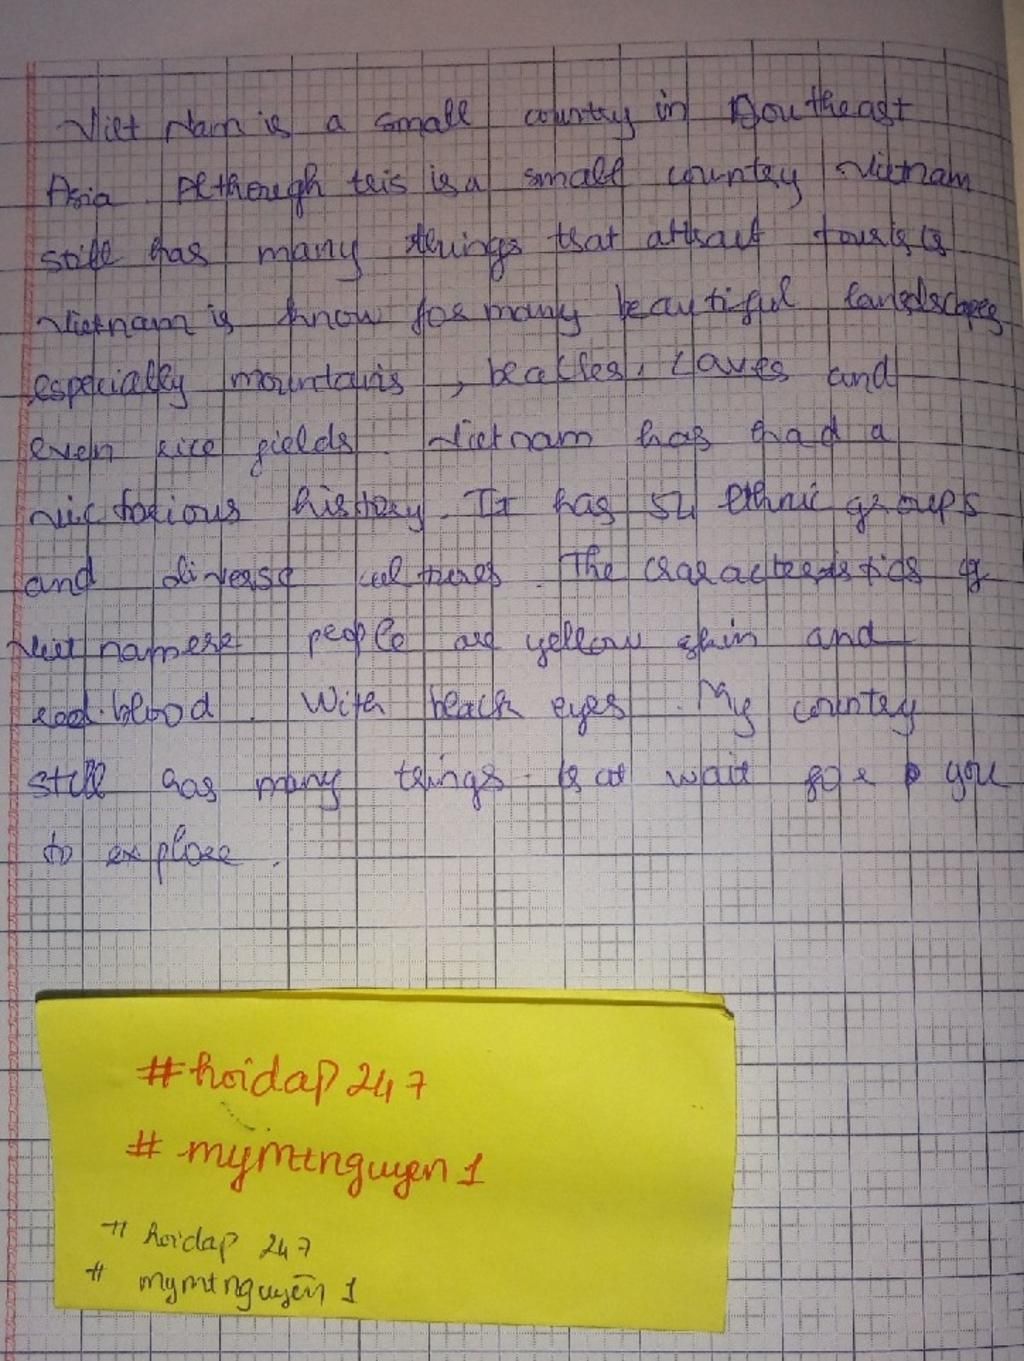 Viet Nam is a small country in Southeast
Asia. Although this is a small country Vietnam
still has many things that attract tourists
Vietnam is know for many beautiful landscapes
especially mountains, beaches, caves and
even rice fields. Vietnam has had a
victorious history. It has 54 ethnic groups
and diverse cultures. The characteristics of
Vietnamese people are yellow skin and
red blood. With black eyes. My country
still has many things is at wait for you
to explore.
#hoidap247
#mymtnguyen1
# hoidap 247
# mymtnguyen1